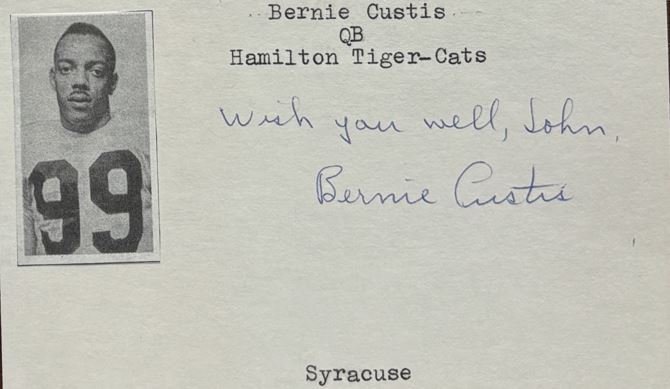 Bernie Custis
QB
Hamilton Tiger-Cats
Wish you well, John,
Bernie Custis
99
Syracuse